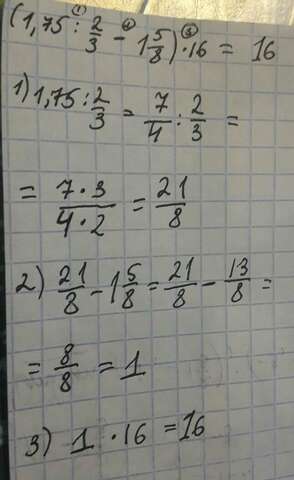 (1,75 :① 2/3 -② 1 5/8) ·③ 16 = 16
1) 1,75 : 2/3 = 7/4 : 2/3 =
= 7·3/4·2 = 21/8
2) 21/8 - 1 5/8 = 21/8 - 13/8 =
= 8/8 = 1
3) 1 · 16 = 16